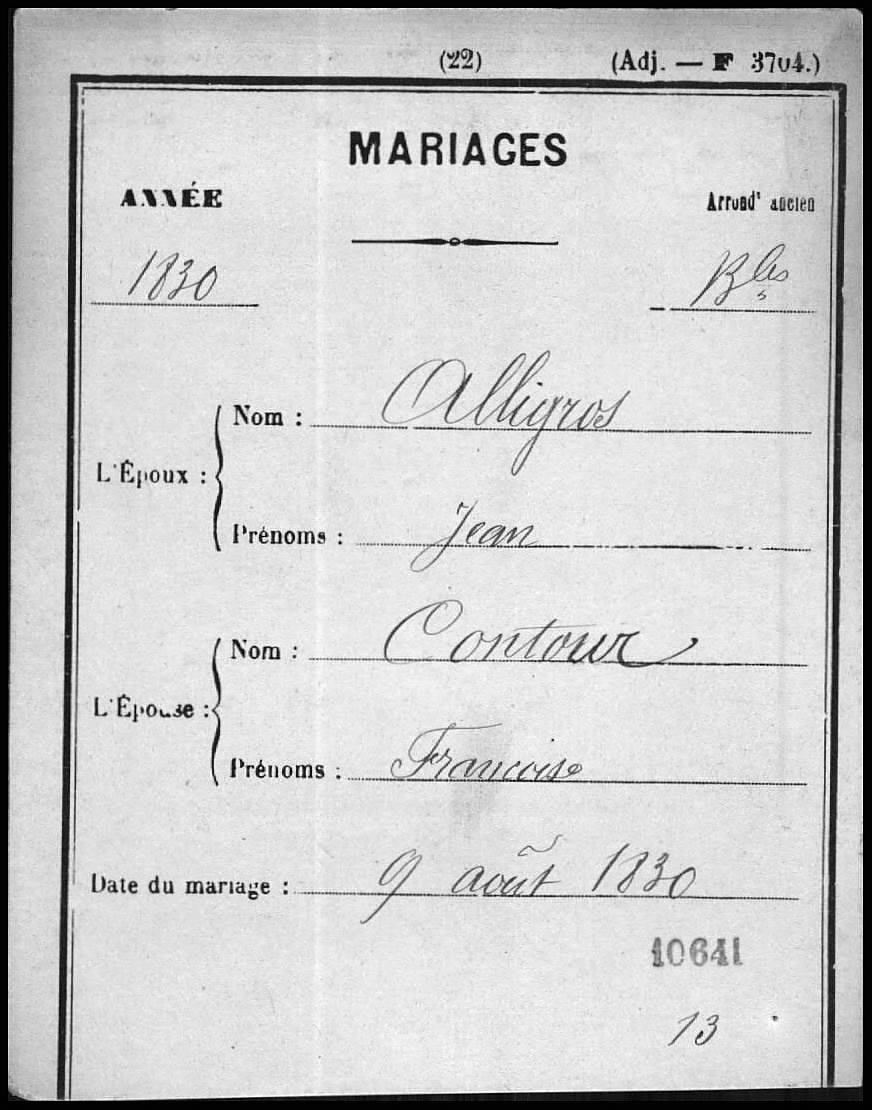 (22) (Adj. — F 3704.)
MARIAGES
ANNÉE Arrondt ancien
1830 Bles
L'Époux :
Nom : Alligros
Prénoms : Jean
L'Épouse :
Nom : Contour
Prénoms : Francoise
Date du mariage : 9 août 1830
10641
13